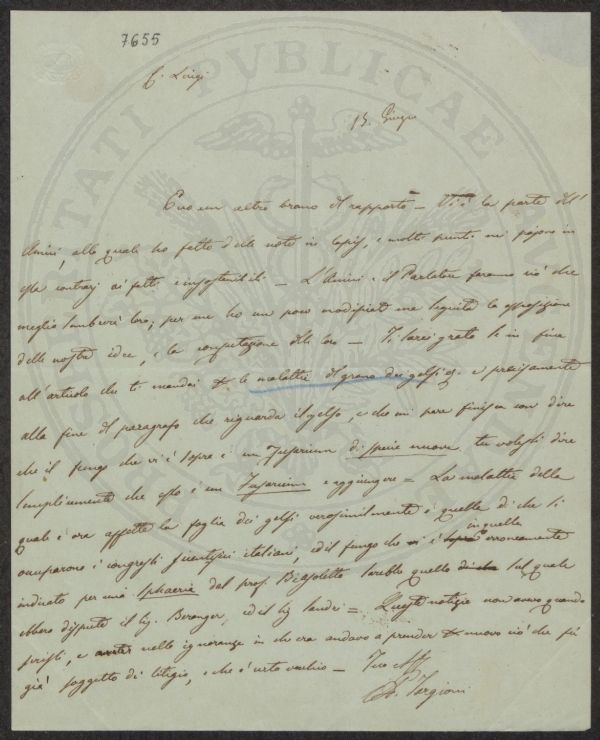 7655
C. Luigi
15. Giugno
Ecco un altro brano del rapporto — Vi è la parte dell'
Amici, alla quale ho fatto delle note in lapis, e molti punti mi pajono in
essa contrarj ai fatti e insostenibili — L'Amici e il Parlatore faranno ciò che
meglio sembrerà loro; per me ho un poco modificato ma seguita la esposizione
delle nostre idee, e la confutazione delle loro — Ti sarei grato se in fine
all'articolo che ti mandai le malattie del grano dei gelsi e precisamente
alla fine del paragrafo che riguarda il gelso, e che mi pare finisca con dire
che il fungo che vi è sopra è un Fusarium di specie nuova tu volessi dire
semplicemente che esso è un Fusarium e aggiungere = La malattia della
quale è ora affetta la foglia dei gelsi verosimilmente è quella di che si
occuparono i congressi scientifici italiani, ed il fungo che è in quella erroneamente
indicato per una Sphaeria dal prof. Biasoletto sarebbe quello sul quale
ebbero dispute il Sig. Beranger, ed il Sig. Sandri = Queste notizie non avevo quando
scrissi, e nella ignoranza in che era andavo a prender di nuovo ciò che fu
già soggetto di litigio, e che è certo vecchio — Tuo Aff.
A. Targioni
PROSPERITATI PVBLICAE AVGENDAE